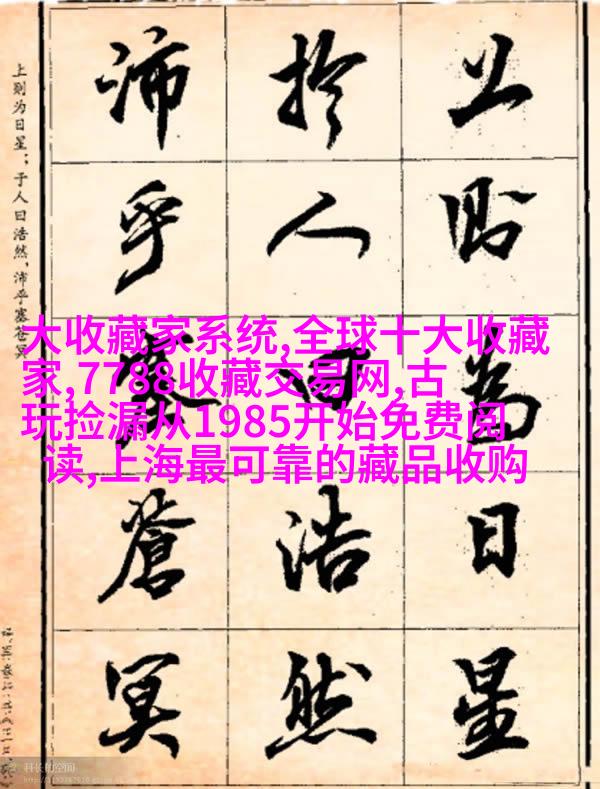 上則為日星
於人曰浩然
沛乎塞蒼冥
上则为日星；于人曰浩然，沛乎塞苍冥
大收藏家系统,全球十大收藏
家,7788收藏交易网,古
玩捡漏从1985开始免费阅
读,上海最可靠的藏品收购
科长的空间